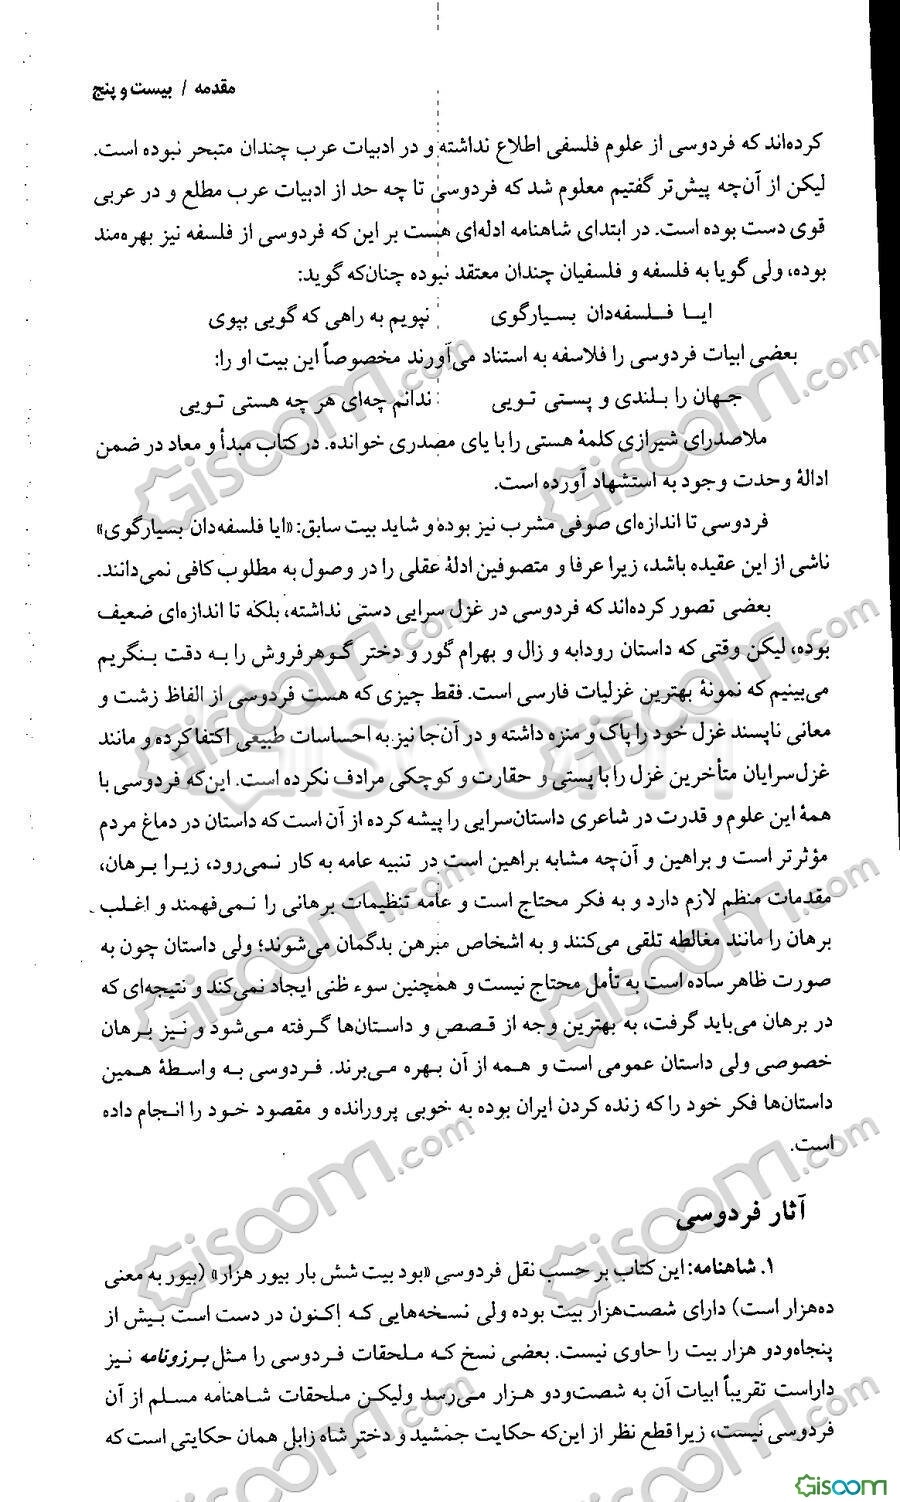 مقدمه / بیست و پنج
کرده‌اند که فردوسی از علوم فلسفی اطلاع نداشته و در ادبیات عرب چندان متبحر نبوده است.
لیکن از آن‌چه پیش‌تر گفتیم معلوم شد که فردوسی تا چه حد از ادبیات عرب مطلع و در عربی
قوی دست بوده است. در ابتدای شاهنامه ادله‌ای هست بر این که فردوسی از فلسفه نیز بهره‌مند
بوده، ولی گویا به فلسفه و فلسفیان چندان معتقد نبوده چنان‌که گوید:
ایا فلسفه‌دان بسیارگوی نپویم به راهی که گویی بپوی
بعضی ابیات فردوسی را فلاسفه به استناد می‌آورند مخصوصاً این بیت او را:
جهان را بلندی و پستی تویی ندانم چه‌ای هر چه هستی تویی
ملاصدرای شیرازی کلمهٔ هستی را با یای مصدری خوانده. در کتاب مبدأ و معاد در ضمن
ادالهٔ وحدت وجود به استشهاد آورده است.
فردوسی تا اندازه‌ای صوفی مشرب نیز بوده و شاید بیت سابق: «ایا فلسفه‌دان بسیارگوی»
ناشی از این عقیده باشد، زیرا عرفا و متصوفین ادلهٔ عقلی را در وصول به مطلوب کافی نمی‌دانند.
بعضی تصور کرده‌اند که فردوسی در غزل سرایی دستی نداشته، بلکه تا اندازه‌ای ضعیف
بوده، لیکن وقتی که داستان رودابه و زال و بهرام گور و دختر گوهرفروش را به دقت بنگریم
می‌بینیم که نمونهٔ بهترین غزلیات فارسی است. فقط چیزی که هست فردوسی از الفاظ زشت و
معانی ناپسند غزل خود را پاک و منزه داشته و در آن‌جا نیز به احساسات طبیعی اکتفا کرده و مانند
غزل‌سرایان متأخرین غزل را با پستی و حقارت و کوچکی مرادف نکرده است. این‌که فردوسی با
همهٔ این علوم و قدرت در شاعری داستان‌سرایی را پیشه کرده از آن است که داستان در دماغ مردم
مؤثرتر است و براهین و آن‌چه مشابه براهین است در تنبیه عامه به کار نمی‌رود، زیرا برهان،
مقدمات منظم لازم دارد و به فکر محتاج است و عامه تنظیمات برهانی را نمی‌فهمند و اغلب
برهان را مانند مغالطه تلقی می‌کنند و به اشخاص مبرهن بدگمان می‌شوند؛ ولی داستان چون به
صورت ظاهر ساده است به تأمل محتاج نیست و همچنین سوء ظنی ایجاد نمی‌کند و نتیجه‌ای که
در برهان می‌باید گرفت، به بهترین وجه از قصص و داستان‌ها گرفته می‌شود و نیز برهان
خصوصی ولی داستان عمومی است و همه از آن بهره می‌برند. فردوسی به واسطهٔ همین
داستان‌ها فکر خود را که زنده کردن ایران بوده به خوبی پرورانده و مقصود خود را انجام داده
است.
آثار فردوسی
۱. شاهنامه: این کتاب بر حسب نقل فردوسی «بود بیت شش بار بیور هزار» (بیور به معنی
ده‌هزار است) دارای شصت‌هزار بیت بوده ولی نسخه‌هایی که اکنون در دست است بیش از
پنجاه‌ودو هزار بیت را حاوی نیست. بعضی نسخ که ملحقات فردوسی را مثل برزونامه نیز
داراست تقریباً ابیات آن به شصت‌ودو هزار می‌رسد ولیکن ملحقات شاهنامه مسلم از آن
فردوسی نیست، زیرا قطع نظر از این‌که حکایت جمشید و دختر شاه زابل همان حکایتی است که
Gisoom